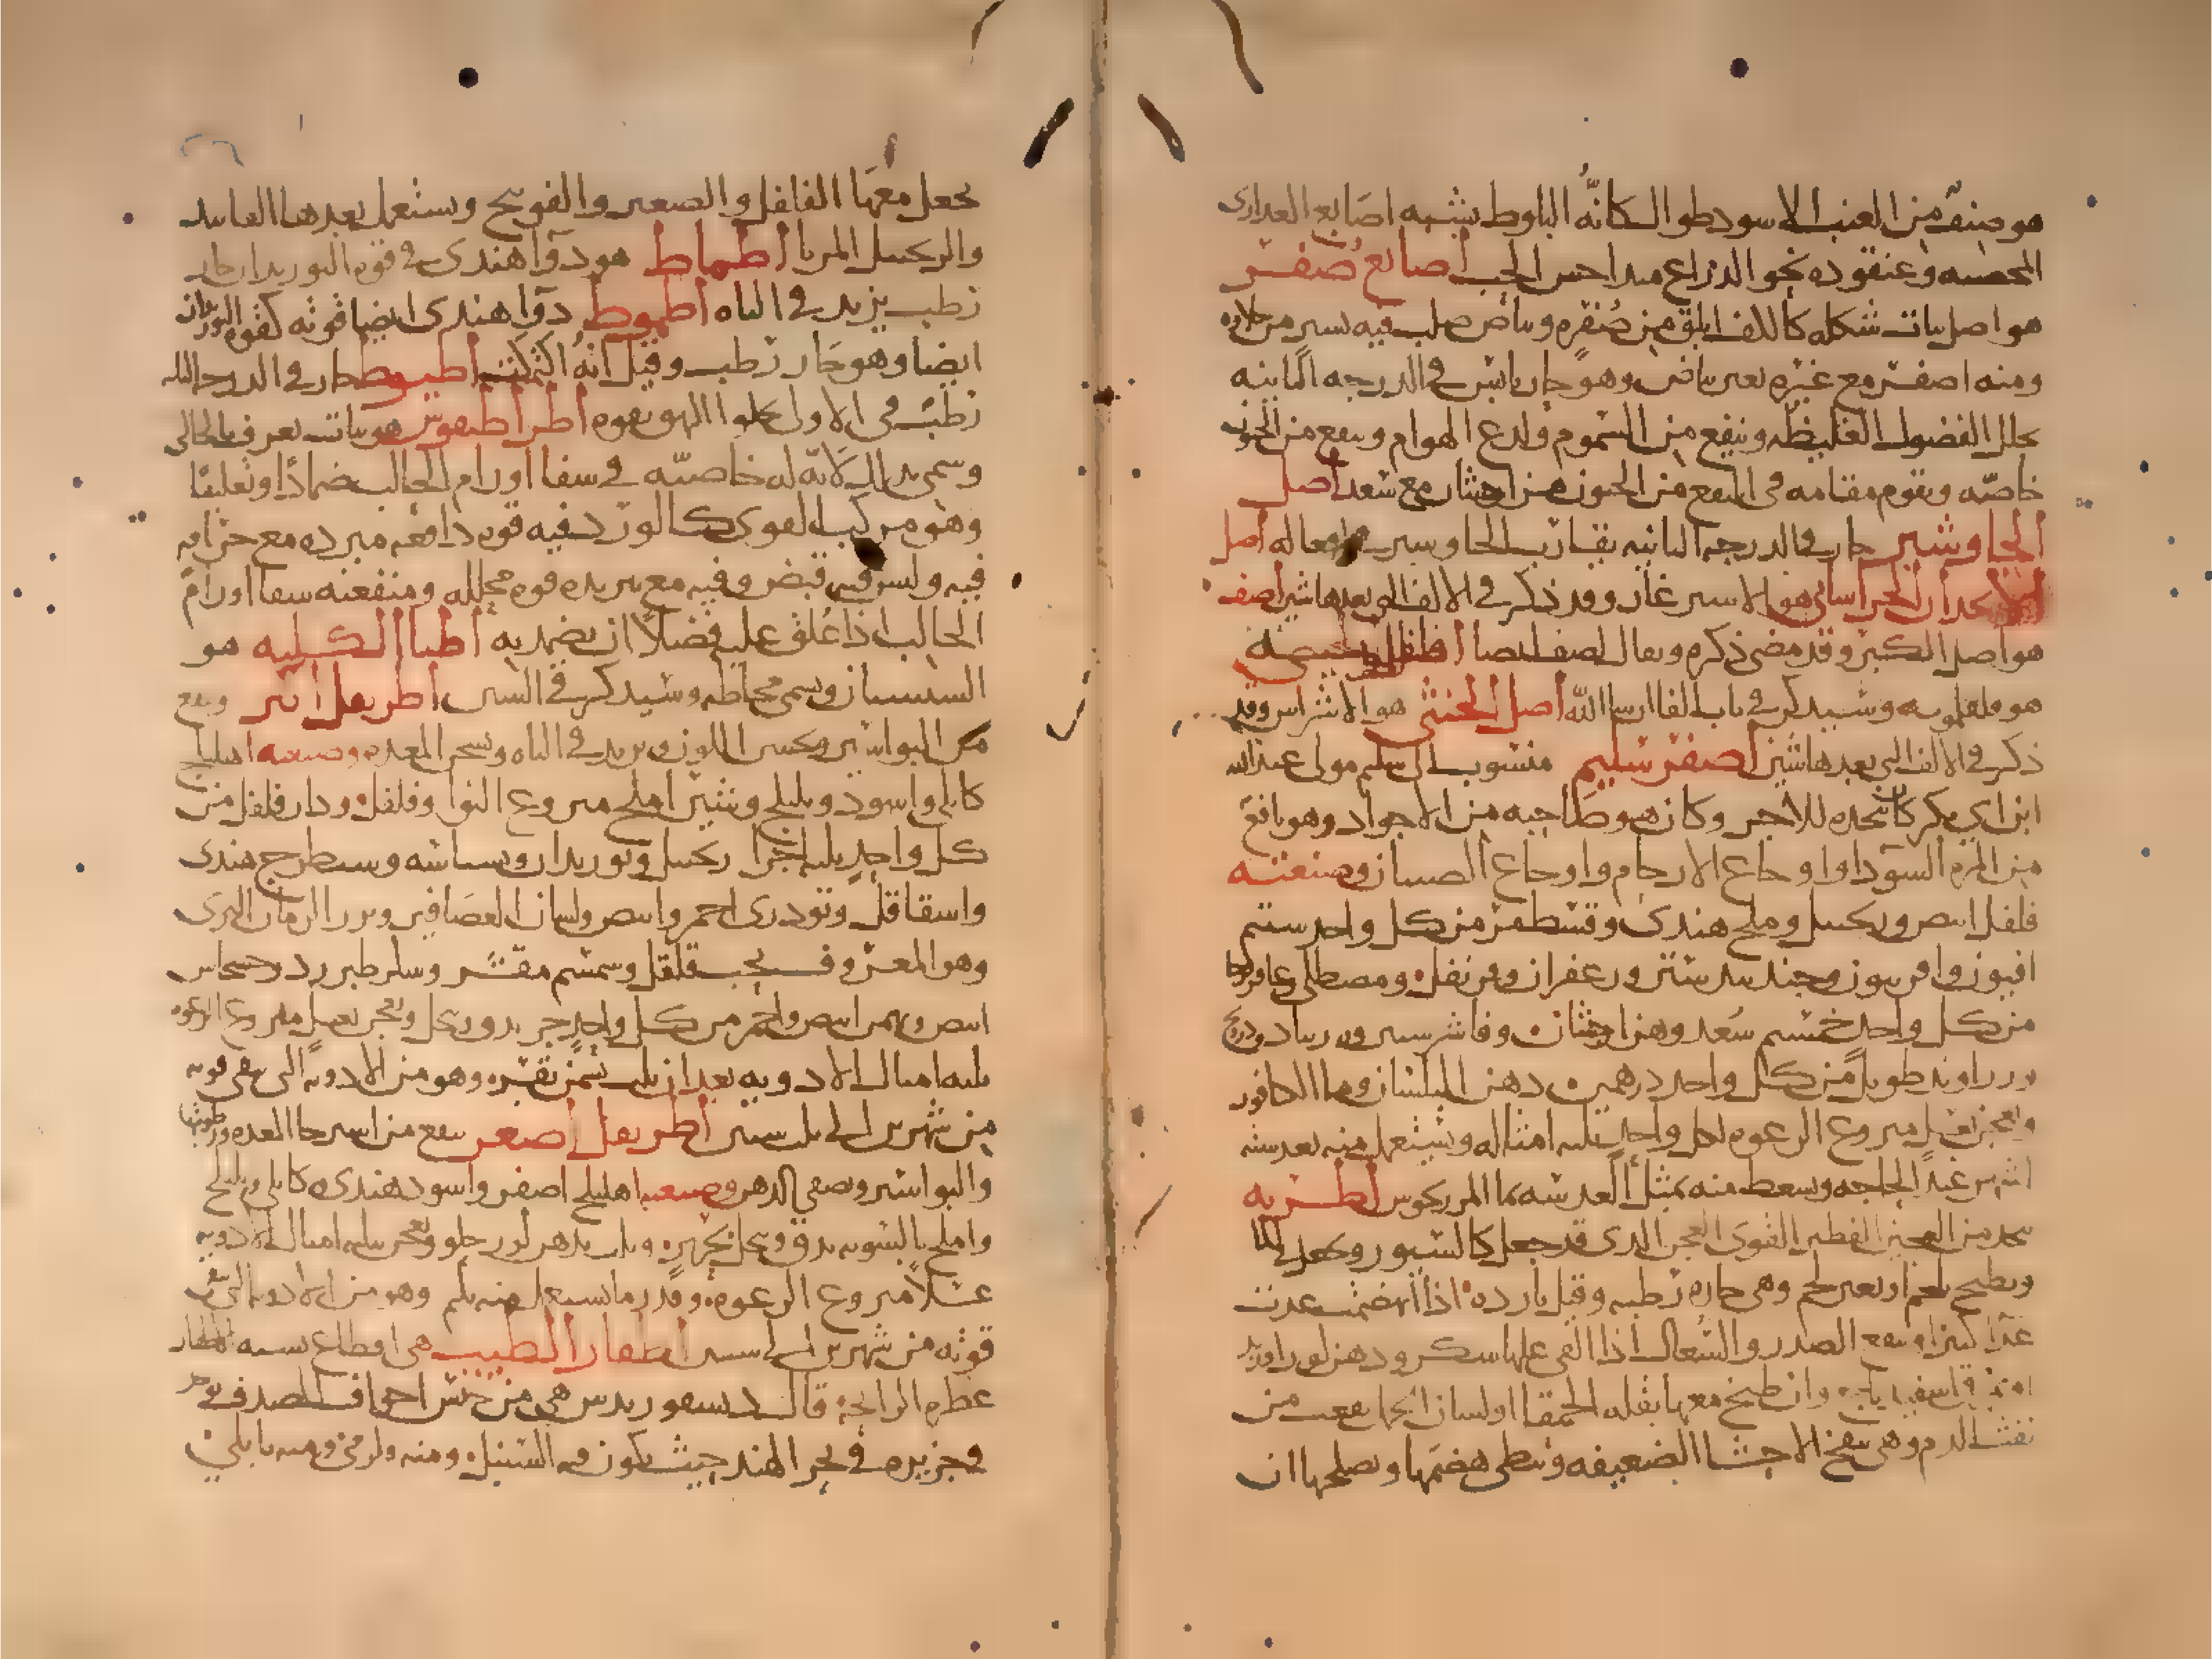 هو صنف من العنب الاسود طوال كانه البلوط يشبه اصابع العذارى
المخضبه وعنقوده نحو الذراع متداخس الحب اصابع صفر
هو اصل نبات شكله كالكف ابلق من صفره وبياض صلب فيه يسير من حلاوه
ومنه اصفر مع غبره بغير بياض وهو حار يابس في الدرجه الثانيه
يحلل الفضول الغليظه وينفع من السموم ولدغ الهوام وينفع من الجنون
خاصه ويقوم مقامه في النفع من الجنون هزارجشان مع سعد اصل
الجاوشير حار في الدرجه الثانيه يقارب الجاوشير في افعاله اصل
الانجدان الخراساني هو الاشترغاز وقد ذكر في الالف التي بعدها شين اصف
هو اصل الكبر وقد مضى ذكره ويقال لصف ايضا
هو فلفلمويه وسيذكر في باب الفا ان شا الله اصل الخنثى هو الاشراس وقد
ذكر في الالف التي بعدها شين اصفر سليم منسوب الى سليم مولى عبد الله
ابن ابي بكر كان يتخذه للاجر وكان هو وصاحبه من الاجواد وهو نافع
من المره السودا واوجاع الارحام واوجاع الصبيان وصنعته
فلفل ابيض وزنجبيل وملح هندي وقسط مر من كل واحد ستة
افيون وافربيون وجندبيدستر وزعفران وقرنفل ومصطكى وعاقرقرحا
من كل واحد خمسه سعد وهزارجشان وفاشرستين وزرنباد ودرونج
وزراوند طويل من كل واحد درهمين دهن البلسان وما الكافور
ويعجن بعسل منزوع الرغوه لكل واحد ثلثه امثاله ويستعمل منه بعد سته
اشهر عند الحاجه ويسعط منه بمثل العدسه بما المرزنجوش اطريه
يتخذ من العجين الفطير القوي العجن الذي قد جعل كالسيور ويجعل في الما
ويطبخ بلحم او بغير لحم وهي حاره رطبه وقيل بارده اذا انهضمت غذت
غذا كثيرا وينفع الصدر والسعال اذا القي عليها سكر ودهن لوز
وان طبخ معها بقله الحمقا او لسان الحمل نفعت من
نفث الدم وهي تنفخ الاحشا الضعيفه وتبطي هضمها ويصلحها ان
يجعل معها الفلفل والصعتر والفوتنج ويستعمل بعدها الفانيد
والزنجبيل المربا اطماط هو دوا هندي في قوه البوزيدان حار
رطب يزيد في الباه اطموط دوا هندي ايضا قوته كقوه البوزيدان
ايضا وهو حار رطب وقيل انه اكتمكت اطيوط حار في الدرجه الثالثه
رطب في الاولى يجلوا البهق بقوه اطراطيقوس هو نبات يعرف بالحالبي
وسمي بذلك لانه له خاصيه في شفا اورام الحالب ضمادا وتعليقا
وهو مركب القوى كالورد فيه قوه دافعه مبرده مع حرافه
فيه وليس فيه قبض وفيه مع تبريده قوه محلله ومنفعته شفا اورام
الحالب اذا علق عليه فضلا ان يضمد به اطبا الكلبه هو
السبستان ويسمى مخاطه وسيذكر في السين اطريفل اكبر وينفع
من البواسير ويحسن اللون ويزيد في الباه ويسخن المعده وصنعته اهليلج
كابلي واسود وبليلج وشير املج منزوع النوا وفلفل ودارفلفل من
كل واحد ثلثه اجزا زنجبيل وبوزيدان وبسباسه وشيطرج هندي
واشقاقل وتودري احمر وابيض ولسان العصافير وبزر الرمان البري
وهو المعروف بحب قلقل وسمسم مقشر وسكر طبرزد وخشخاش
ابيض وبهمن ابيض واحمر من كل واحد جز يدق وينخل ويعجن بعسل منزوع الرغوه
ثلثه امثال الادويه بعد ان يلت بسمن بقر وهو من الادويه التي تبقى قوته
من شهرين الى ثلث سنين اطريفل اصغر ينفع من استرخا المعده ورطوبتها
والبواسير ويصفي الذهن وصنعته اهليلج اصفر واسود هندي وكابلي وبليلج
واملج بالسويه يدق وينخل بحريره ويلت بدهن لوز حلو ويعجن بثلثه امثال الادويه
عسلا منزوع الرغوه وقدر ما يستعمل منه ثلثه وهو من الادويه التي تبقى
قوته من شهرين الى سنتين اظفار الطيب هي اقطاع تشبه الاظفار
عطره الرائحه قال ديسقوريدس هي من جنس اخزاف الصدف توجد
في جزيره في بحر الهند حيث يكون فيه السنبل ومنه قلزمي ومنه بابلي